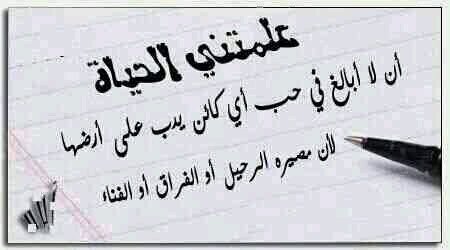 علمتني الحياة
أن لا أبالغ في حب أي كائن يدب على أرضها
لأن مصيره الرحيل أو الفراق أو الفناء